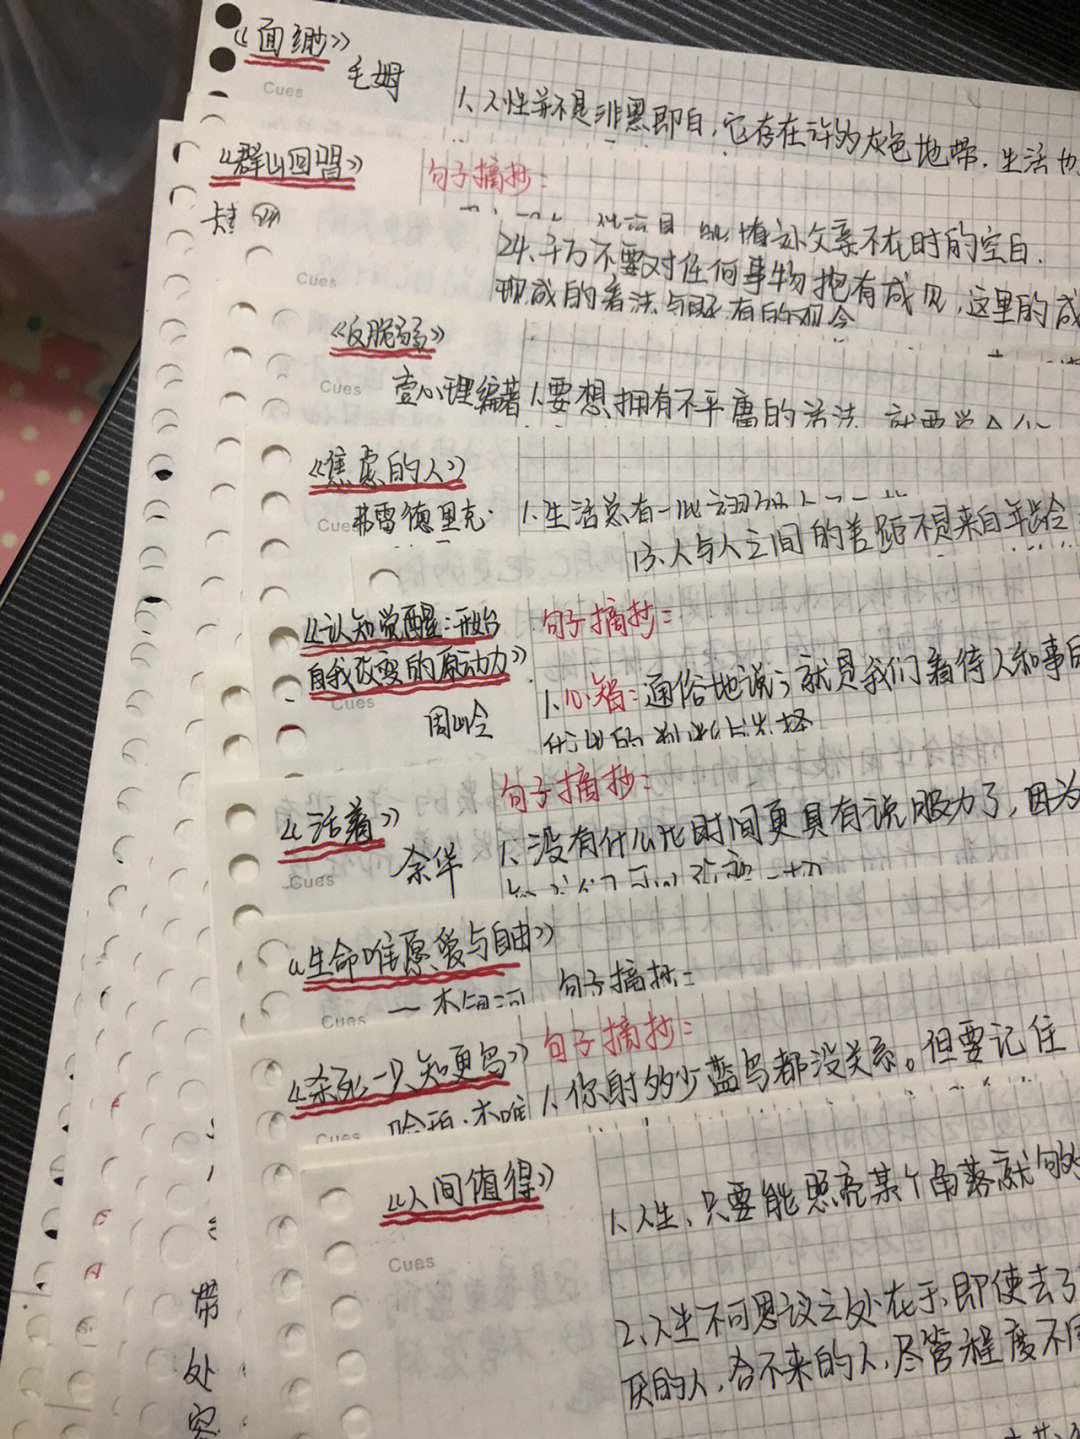 《面纱》
毛姆
Cues
1、人性并不是非黑即白，它存在许多灰色地带．生活也
《群山回唱》
句子摘抄：
卡
父亲不在时的空白．
24、千万不要对任何事物抱有成见，这里的成
现成的看法与既有的观念
Cues
《反脆弱》
Cues
壹心理编著
1、要想拥有不平庸的活法
《焦虑的人》
Cues
弗雷德里克·
1、生活总有一些
13、人与人之间的差距不是来自年龄
《认知觉醒：开始
自我改变的原动力》
Cues
周岭
句子摘抄：
1、心智：通俗地说，就是我们看待人和事的
判断与选择
《活着》
余华
Cues
句子摘抄：
1、没有什么比时间更具有说服力了，因为
改变一切
《生命唯愿爱与自由》
Cues
句子摘抄：
《杀死一只知更鸟》
Cues
哈珀·
句子摘抄：
1、你射多少蓝鸟都没关系。但要记住
《人间值得》
Cues
1、人生、只要能照亮某个角落就够
2、人生不可思议之处在于、即使去了
厌的人，合不来的人、尽管程度不同
带
处
容